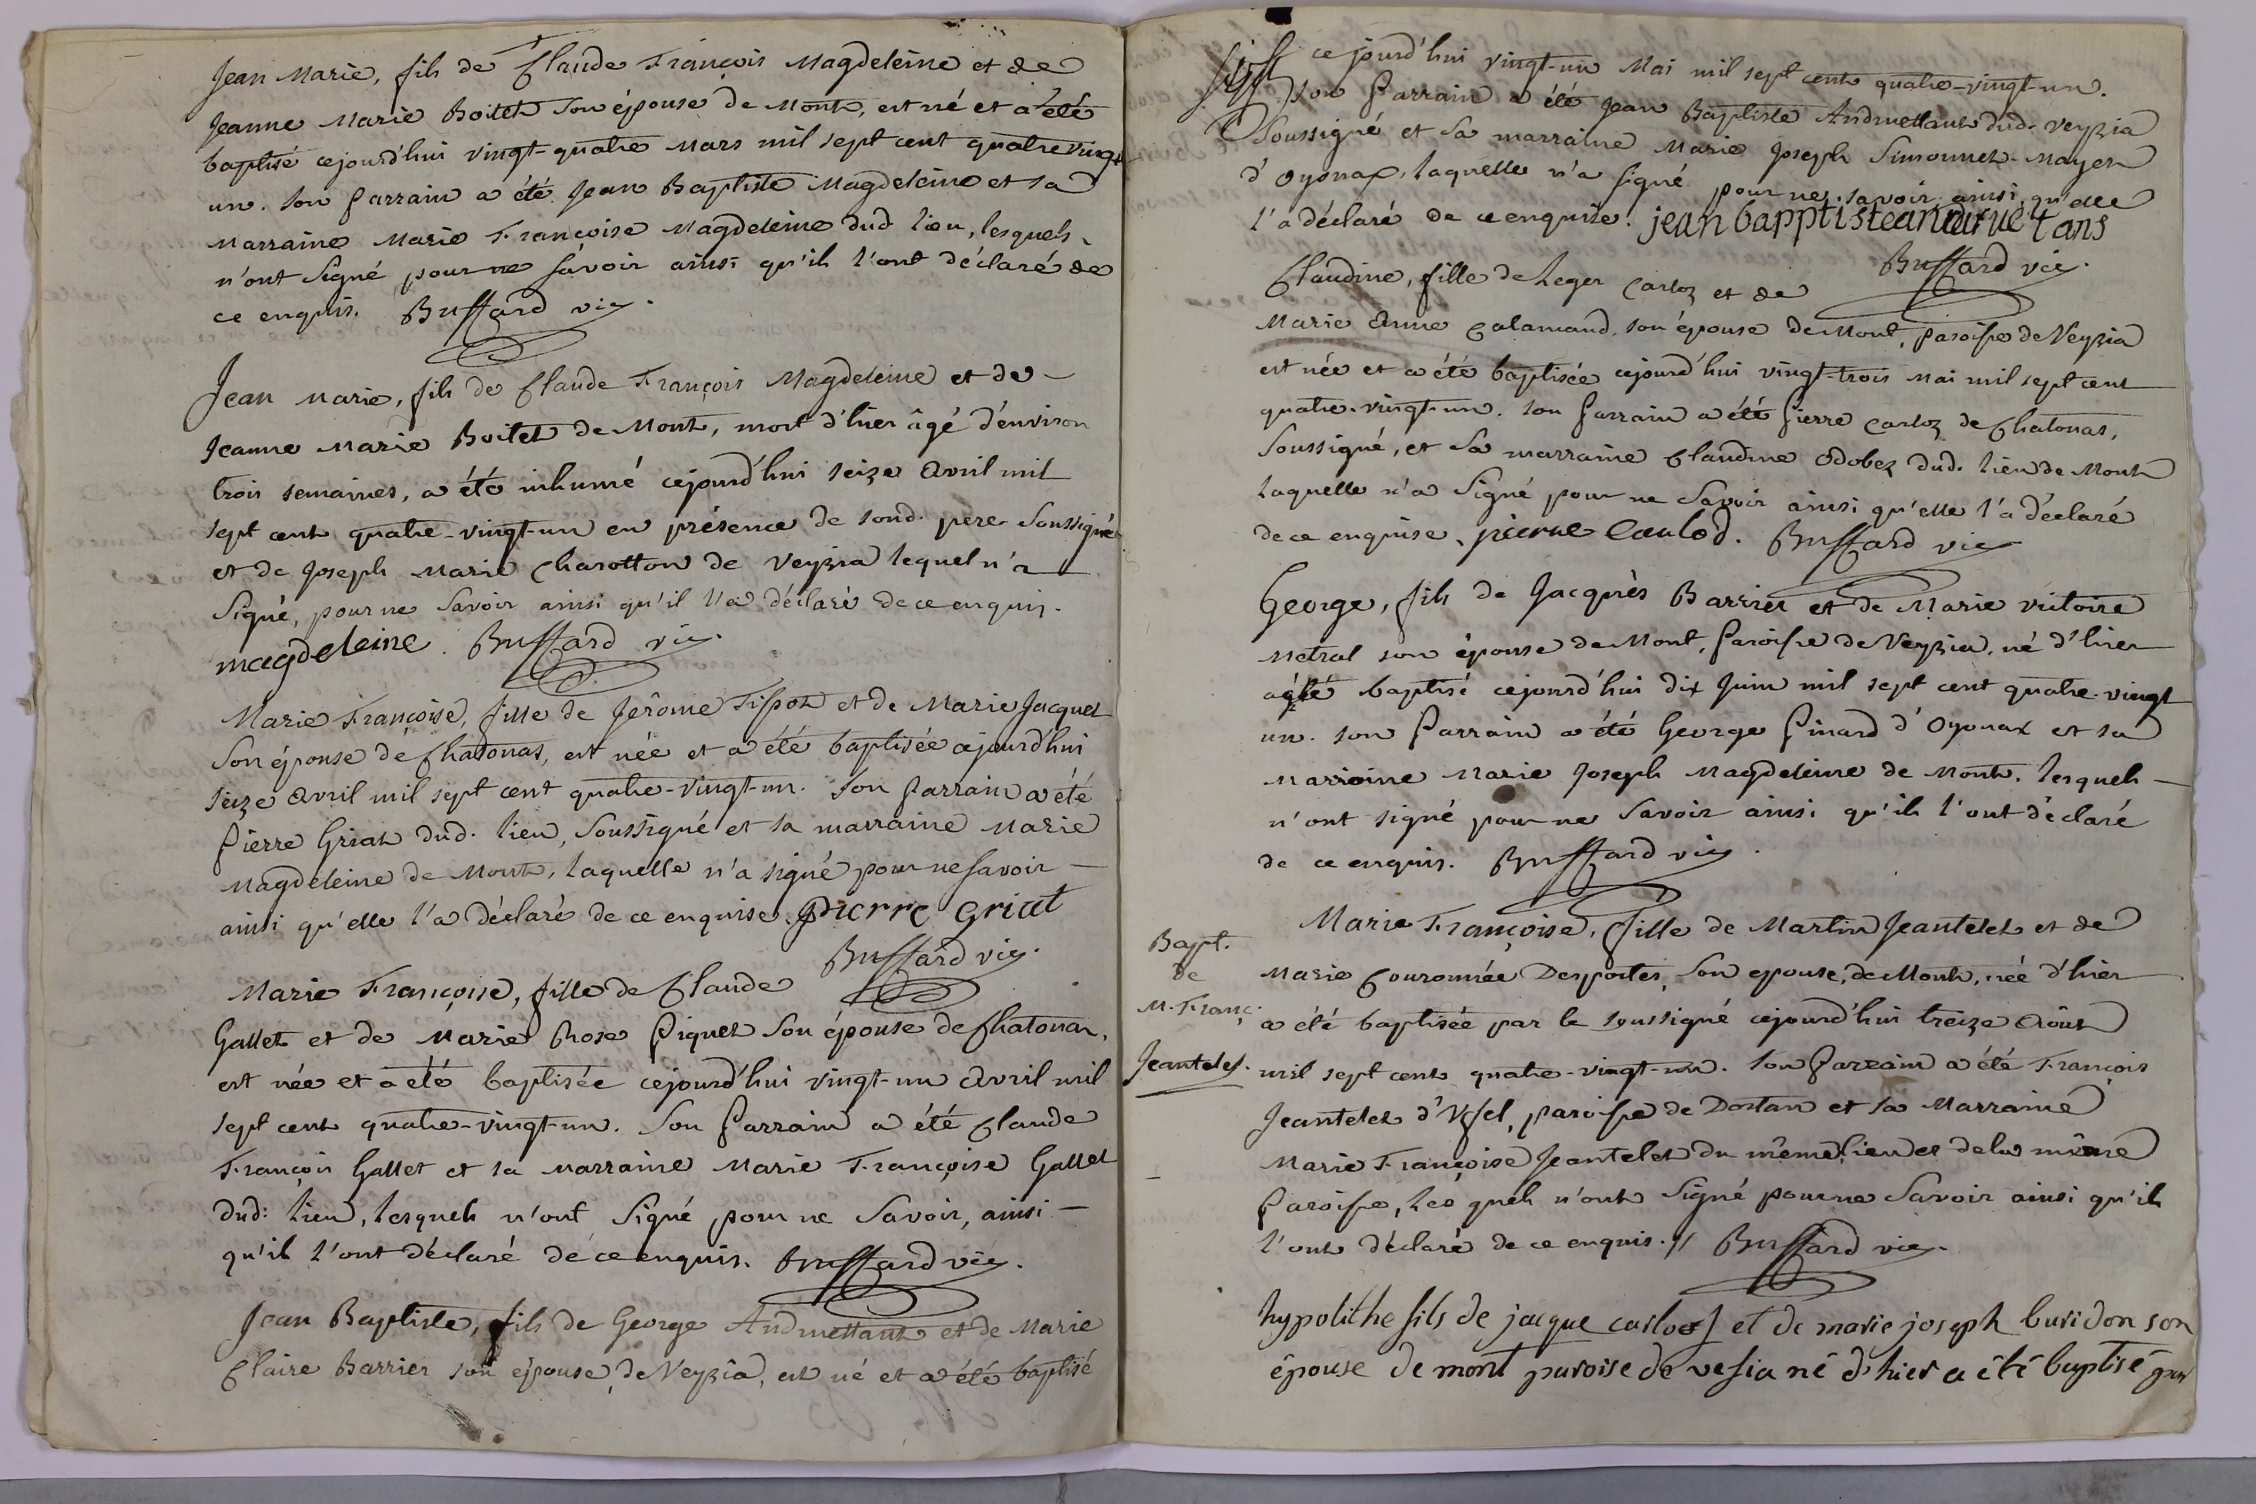 Jean Marie, fils de Claude François Magdeleine et de
Jeanne Marie Boitet son épouse de Mont, est né et a été
baptisé cejourd'hui vingt-quatre Mars mil sept cent quatre vingt
un. Son Parrain a été Jean Baptiste Magdeleine et sa
Marraine Marie Françoise Magdeleine dud lieu, lesquels
n'ont signé pour ne savoir ainsi qu'ils l'ont déclaré de
ce enquis. Buffard vic.
Jean Marie, fils de Claude François Magdeleine et de
Jeanne Marie Boitet de Mont, mort d'hier âgé d'environ
trois semaines, a été inhumé cejourd'hui seize Avril mil
sept cent quatre-vingt-un en présence de sond. pere soussigné
et de Joseph Marie Charotton de Veyzia lequel n'a
signé, pour ne savoir ainsi qu'il l'a déclaré de ce enquis.
magdeleine. Buffard vic.
Marie Françoise, fille de Jerôme Tissot et de Marie Jacquet
Son épouse de Chatonas, est née et a été baptisée cejourd'hui
seize Avril mil sept cent quatre-vingt-un. Son Parrain a été
Pierre Griat dud. lieu, soussigné et sa marraine Marie
Magdeleine de Mont, laquelle n'a signé pour ne savoir
ainsi qu'elle l'a déclaré de ce enquise. pierre griat
Buffard vic.
Marie Françoise, fille de Claude
Gallet et de Marie Rose Piquet son épouse de Chatonas,
est née et a été baptisée cejourd'hui vingt-un Avril mil
sept cent quatre-vingt-un. Son Parrain a été Claude
François Gallet et sa marraine Marie Françoise Gallet
dud: lieu, lesquels n'ont signé pour ne savoir, ainsi
qu'ils l'ont déclaré de ce enquis. Buffard vic.
Jean Baptiste, fils de George Andruettant et de Marie
Claire Barrier son épouse de Veyzia, est né et a été baptisé
ce jourd'hui vingt-un Mai mil sept cent quatre-vingt-un.
Son Parrain a été Jean Baptiste Andruettant dud. Veyzia
soussigné et sa marraine Marie Joseph Simonnet-Mayet
d'Oyonax, laquelle n'a signé pour ne savoir ainsi qu'elle
l'a déclaré de ce enquise. jean bapptiste
Buffard vic.
Claudine, fille de Leger Carloz et de
Marie Anne Calamand son épouse de Mont, paroisse de Veyzia
est née et a été baptisée cejourd'hui vingt-trois Mai mil sept cent
quatre-vingt-un. Son Parrain a été Pierre Carloz de Chatonas,
soussigné, et sa marraine Claudine Odobez dud. lieu de Mont
laquelle n'a signé pour ne savoir ainsi qu'elle l'a déclaré
de ce enquise. pierre Carlod. Buffard vic
George, fils de Jacques Barrier et de Marie victoire
Metral son épouse de Mont, paroisse de Veyzia, né d'hier
a été baptisé cejourd'hui dix Juin mil sept cent quatre-vingt
un. Son Parrain a été George Pinard d'Oyonax et sa
marraine Marie Joseph Magdeleine de Mont. lesquels
n'ont signé pour ne savoir ainsi qu'ils l'ont déclaré
de ce enquis. Buffard vic.
Bapt.
de
M. Franç.
Jeantelet.
Marie Françoise, fille de Martin Jeantelet et de
Marie Couronnée Desportes, son epouse, de Mont, née d'hier
a été baptisée par le soussigné cejourd'hui treize Août
mil sept cent quatre-vingt-un. Son Parrain a été François
Jeantelet d'Ussel, paroisse de Dortan et sa Marraine
Marie Françoise Jeantelet du même lieu et de la même
Paroisse, lesquels n'ont signé pour ne savoir ainsi qu'ils
l'ont déclaré de ce enquis. // Buffard vic.
hypolithe fils de jacque carloz et de marie joseph buridon son
épouse de mont paroise de vesia né d'hier a été baptisé par